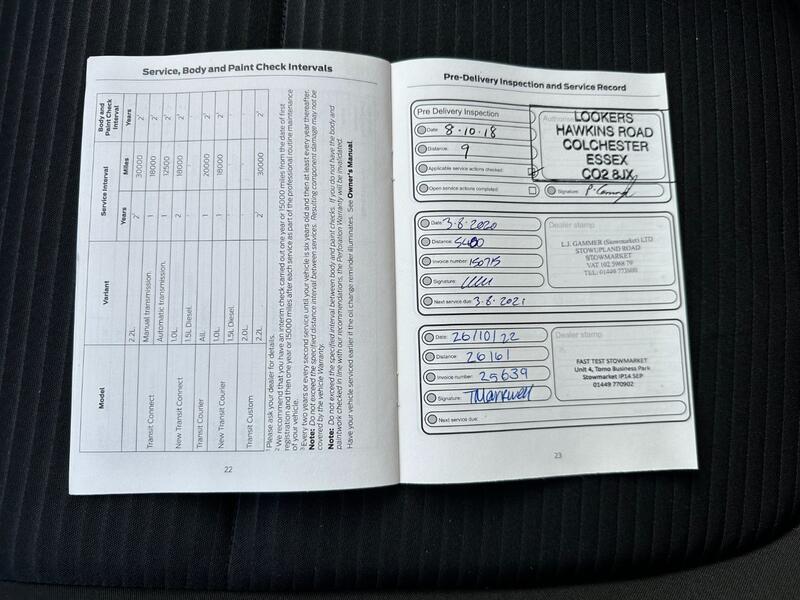 Service, Body and Paint Check Intervals
Model
Variant
Service Interval
Body and Paint Check Interval
Years
Miles
Years
2.2L
2
30000
2
Transit Connect
Manual transmission.
1
18000
2
Automatic transmission.
1
12500
2
New Transit Connect
1.0L
2
18000
2
1.5L Diesel.
Transit Courier
All.
1
20000
2
New Transit Courier
1.0L
1
18000
2
1.5L Diesel.
Transit Custom
2.0L
2.2L
2
30000
2
1 Please ask your dealer for details.
2 We recommend that you have an interim check carried out one year or 15000 miles from the date of first
registration and then one year or 15000 miles after each service as part of the professional routine maintenance
of your vehicle.
3 Every two years or every second service until your vehicle is six years old and then at least every year thereafter.
Note: Do not exceed the specified distance interval between services. Resulting component damage may not be
covered by the vehicle Warranty.
Note: Do not exceed the specified interval between body and paint checks. If you do not have the body and
paintwork checked in line with our recommendations, the Perforation Warranty will be invalidated.
Have your vehicle serviced earlier if the oil change reminder illuminates. See Owner's Manual.
22
Pre-Delivery Inspection and Service Record
Pre Delivery Inspection
Date 8·10·18
Distance: 9
Applicable service actions checked:
Open service actions completed:
LOOKERS
HAWKINS ROAD
COLCHESTER
ESSEX
CO2 8JX
Signature:
Date: 3.8.2020
Distance: 5400
Invoice number: 150715
Signature:
Next service due: 3.8.2021
Dealer stamp
L.J. GAMMER (Stowmarket) LTD
STOWUPLAND ROAD
STOWMARKET
VAT 102 5968 70
TEL: 01449 773600
Date: 26/10/22
Distance: 26161
Invoice number: 29639
Signature: TMarkwell
Next service due:
Dealer stamp
FAST TEST STOWMARKET
Unit 4, Tomo Business Park
Stowmarket IP14 5EP
01449 770902
23